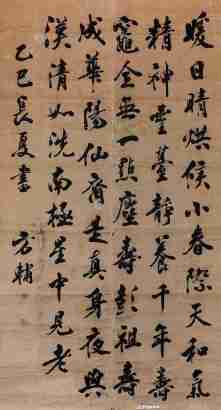 暖日晴烘候小春際天和氣
精神靈臺靜養千年壽
竈全無一點塵壽彭祖壽
成華陽仙裔是真身夜
漢清如洗南極星中見老
乙巳長夏書 方輔